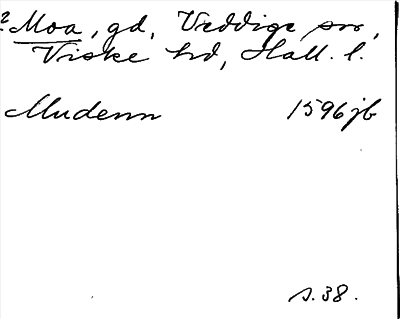 2 Moa, gd, Veddige sn,
Viske hd, Hall. l.
Mudenn 1596 jb
s. 38.